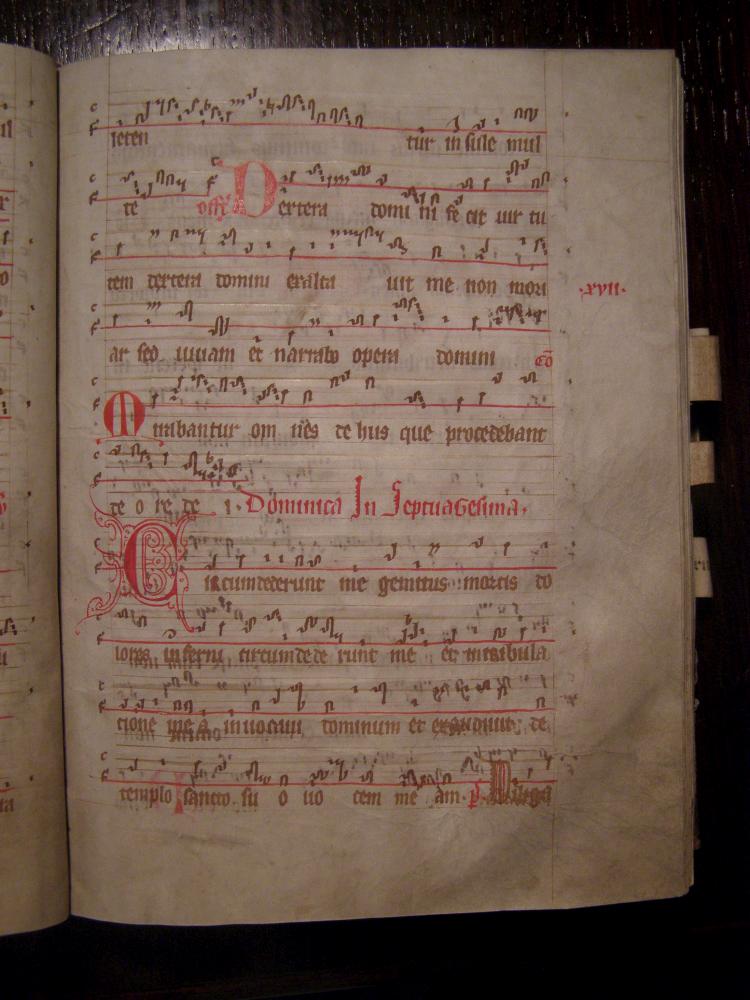 leten tur insule mul
te off Dextera domi ni fe cit uir tu
tem dextera domini exalta uit me non mori
.xvii.
ar sed uiuam et narrabo opera domini co
Mirabantur om nes de hiis que procedebant
de o re de i. Dominica In Septuagesima.
Circumdederunt me gemitus mortis do
lores inferni circumdede runt me et in tribula
cione me a inuocaui dominum et exaudiuit de
templo sancto su o uo cem me am. Diliga